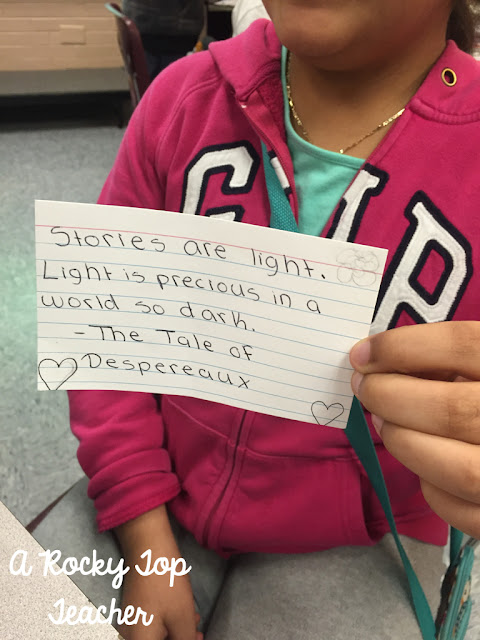 GAP
Stories are light.
Light is precious in a
world so dark.
-The Tale of
Despereaux
A Rocky Top
Teacher